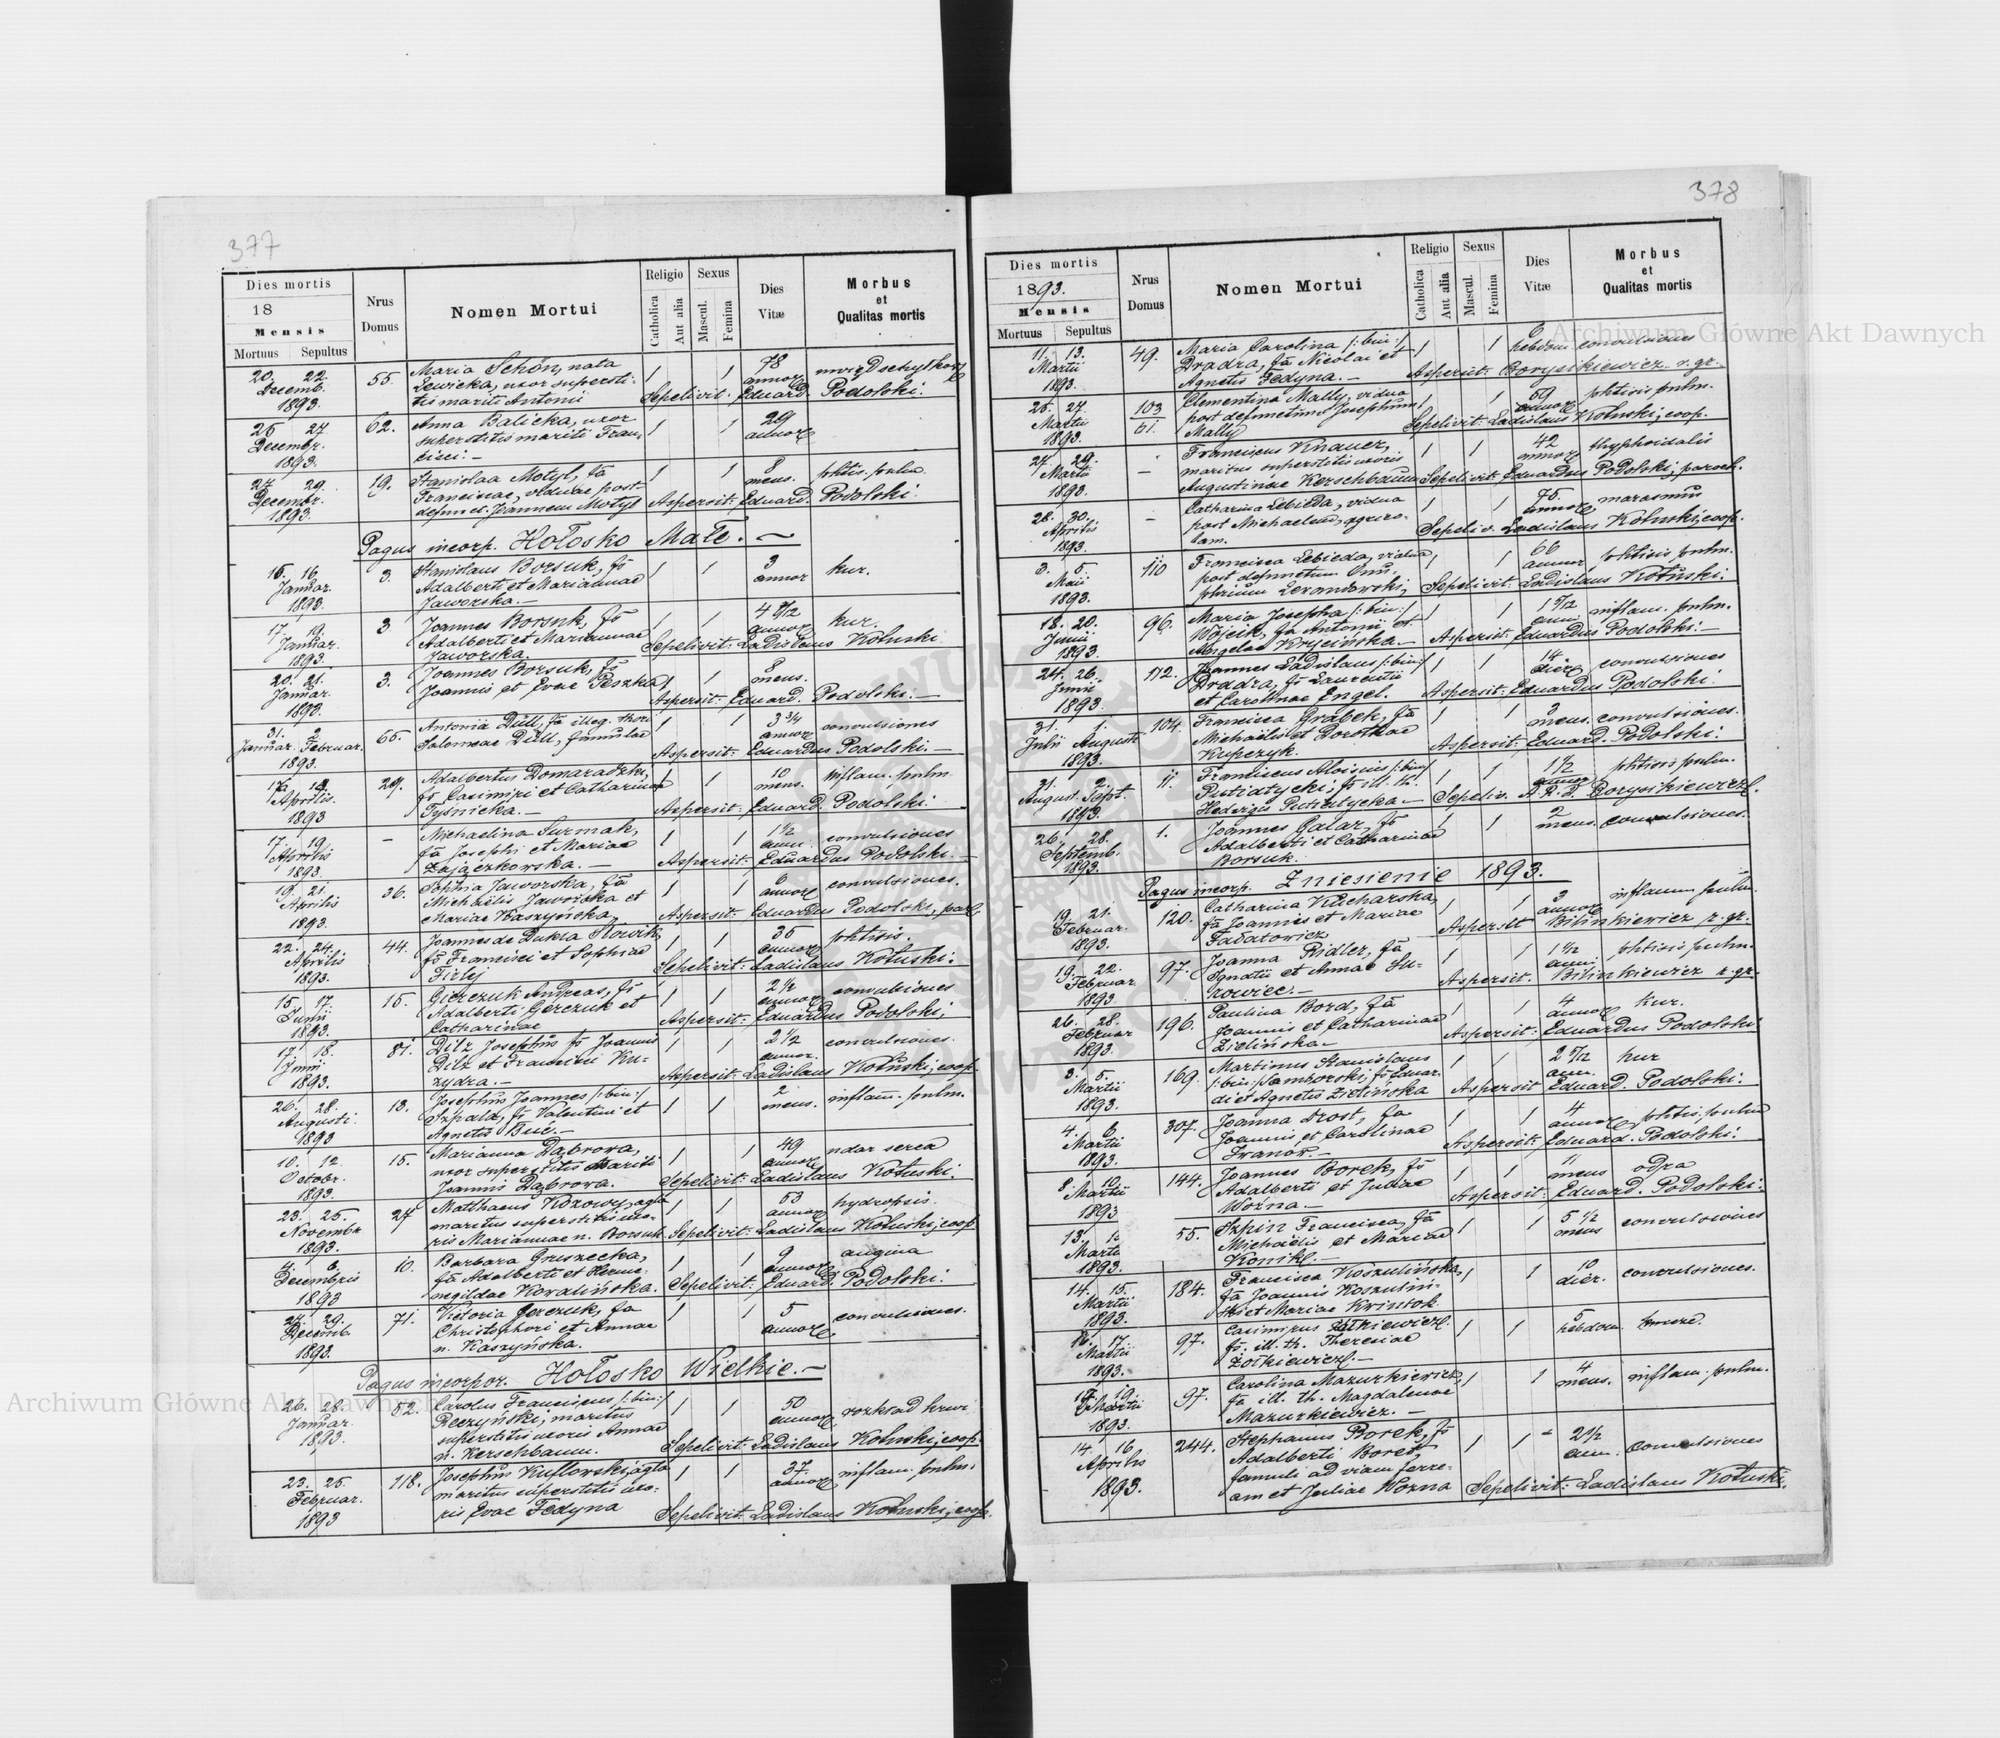 377
Dies mortis
18
Mensis
Mortuus Sepultus
Nrus Domus
Nomen Mortui
Religio
Catholica
Aut alia
Sexus
Mascul.
Femina
Dies Vitæ
Morbus et Qualitas mortis
20. 22. Decemb. 1893. 55. 1 1 78 annor
Maria Schön, nata
Lewicka, uxor supersti-
tis mariti Antonii Sepelivit: Eduard. Podolski.
25 27 Decembr. 1893. 62. 1 1 29 annor
Anna Balicka, uxor
superstitis mariti Fran-
cisci. –
27. 29. Decembr. 1893. 19. 1 1 8 mens. phtis. pulm.
Stanislaa Motyl, fa
Franciscae, viduae post
defunct. Joannem Motyl Aspersit: Eduard. Podolski.
Pagus incorp. Hołosko Małe. –
15. 16. Januar. 1893. 3. 1 1 3 annor kur.
Stanislaus Borsuk, fs
Adalberti et Mariannae
Jaworska. –
17. 19. Januar. 1893. 3 1 1 4 8/12 annor kur.
Joannes Borsuk, fs
Adalberti et Mariannae
Jaworska. Sepelivit: Ladislaus Kołuski
20. 21. Januar. 1893. 3. 1 1 8 mens.
Joannes Borsuk, fs
Joannis et Evae Peszka
Aspersit: Eduard. Podolski. –
31. 2. Januar. Februar. 1893. 65. 1 1 3 3/4 annor convulsiones
Antonia Düll, fa illeg. thori
Salomeae Düll, famulae
Aspersit: Eduardus Podolski. –
Aprilis 1893 29. 1 1 10 mens. inflam. pulm.
Adalbertus Domaradzki,
fs Casimiri et Catharinae
Tyśnicka. – Aspersit: Eduard. Podolski.
17. 19. Aprilis 1893. – 1 1 1 1/2 anni convulsiones
Michaelina Surmak,
fa Josephi et Mariae
Zajączkowska. – Aspersit: Eduardus Podolski. –
19. 21. Aprilis 1893. 36. 1 1 6 annor convulsiones.
Sophia Jaworska, fa
Michaelis Jaworska et
Mariae Kaszyńska Aspersit: Eduardus Podolski, par.
22. 24. Aprilis 1893. 44. 1 1 35 annor phtisis.
Joannes de Dukla Słowik,
fs Francisci et Sophiae
Tirlej Sepelivit: Ladislaus Kołuski.
15. 17. Junii 1893. 15. 1 1 2 1/2 annor convulsiones
Gierczuk Andreas, fs
Adalberti Gerczuk et
Catharinae Aspersit: Eduardus Podolski;
17. 18. Junii 1893. 81. 1 1 2 1/2 annor. convulsiones.
Dilz Josephus fs Joannis
Dilz et Franciscae Ku-
rydra. – Aspersit: Ladislaus Kołuski; coop.
26. 28. Augusti 1893 13. 1 1 2 mens. inflam. pulm.
Josephus Joannes /:bin:/
Szpala, fs Valentini et
Agnetis Buć. –
10. 12. Octobr. 1893. 15. 1 1 49 annor udar serca
Marianna Dąbrowa,
uxor superstitis mariti
Joannis Dąbrowa. Sepelivit: Ladislaus Kołuski.
23. 25. Novembr 1893. 27 1 1 53 annor hydropsis.
Matthaeus Korowy, agla
maritus superstitis uxo-
ris Mariannae n. Borsuk Sepelivit: Ladislaus Kołuski; coop
4. 6. Decembris 1893 10. 1 1 9 annor angina
Barbara Gruszecka,
fa Adalberti et Herme-
negildae Kowalińska. Sepelivit: Eduard. Podolski.
27. 29. Decemb. 1893. 71. 1 1 5 annor convulsiones.
Victoria Gerczuk, fa
Christophori et Annae
n. Kaszyńska.
Pagus incorpor. Hołosko Wielkie. –
26. 28. Januar. 1893. 52. 1 1 50 annor rozkład krwi
Carolus Franciscus /:bin:/
Reczyński; maritus
superstitis uxoris Annae
n. Kerschbaum. Sepelivit: Ladislaus Kołuski; coop.
23. 25. Februar. 1893 118. 1 1 37. annor inflam. pulm.
Josephus Kuflowski, agla
maritus superstitis uxo-
ris Evae Fedyna Sepelivit: Ladislaus Kołuski; coop.
378
Dies mortis
1893.
Mensis
Mortuus Sepultus
Nrus Domus
Nomen Mortui
Religio
Catholica
Aut alia
Sexus
Mascul.
Femina
Dies Vitæ
Morbus et Qualitas mortis
11. 13. Martii 1893. 49. 1 1 6 hebdom convulsiones
Maria Carolina /:bin:/
Dradra, fa Nicolai et
Agnetis Fedyna. – Aspersit: Borysikiewicz r. gr.
25. 27. Martii 1893. 103/61. 1 1 69 annor phtisis pulm.
Clementina Mally, vidua
post defunctum Josephum
Mally Sepelivit: Ladislaus Kołuski; coop.
27. 29. Martii 1893. – 1 1 42 annor thyphoidalis
Franciscus Knauer,
maritus superstitis uxoris
Augustinae Kerschbaum Sepelivit: Eduardus Podolski; paroch.
28. 30. Aprilis 1893. – 1 1 75. annor marasmus
Catharina Lebieda, vidua
post Michaelem, agrico-
lam. Sepeliv. Ladislaus Kołuski; coop.
3. 5. Maii 1893. 110 1 1 66 annor phtisis pulm.
Francisca Lebieda, vidua
post defunctum Onu-
phrium Lewandowski; Sepelivit: Ladislaus Kołuski.
18. 20. Junii 1893. 96. 1 1 1 5/12 anni inflam. pulm.
Maria Josepha /:bin:/
Wójcik, fa Antonii et
Angelae Krzycińska. – Aspersit: Eduardus Podolski. –
24. 26. Junii 1893. 112. 1 1 14 dier convulsiones
Joannes Ladislaus /:bin:/
Dradra, fs Laurentii
et Carolinae Engel. Aspersit: Eduardus Podolski.
31. 1. Julii Augusti 1893. 104. 1 1 3 mens. convulsiones.
Francisca Grabek, fa
Michaelis et Dorothae
Kupczyk. Aspersit: Eduard. Podolski.
31. 2. August. Sept. 1893. 11. 1 1 1 1/2 phtisis pulm.
Franciscus Aloisius /:bin:/
Putiatycki, fs ill. th.
Hedwigis Putiatycka – Sepeliv. A. R. D. Borysikiewicz.
26. 28. Septemb. 1893. 1. 1 1 2 mens. convulsiones.
Joannes Galar, fs
Adalberti et Catharinae
Borsuk.
Pagus incorp. Zniesienie 1893.
19. 21. Februar. 1893. 120. 1 1 3 annor inflamm pulm.
Catharina Kucharska,
fa Joannis et Mariae
Fadatowicz Aspersit Bilinkiewicz r. gr.
19. 22. Februar. 1893 97. 1 1 1 1/2 anni phtisis pulm.
Joanna Ridler, fa
Ignatii et Annae Su-
rowiec. – Aspersit. Bilinkiewicz r. gr.
26. 28. Februar 1893. 196. 1 1 4 annor kur.
Paulina Bord, fa
Joannis et Catharinae
Zielińska – Aspersit: Eduardus Podolski.
3. 5. Martii 1893. 169. 1 1 2 5/12 ann. kur
Martinus Stanislaus
/:bin:/ Samborski, fs Eduar-
di et Agnetis Zielińska Aspersit Eduard. Podolski.
4. 6. Martii 1893. 307. 1 1 4 annor phtisis. pulm
Joanna Drost, fa
Joannis et Carolinae
Iranów. – Aspersit: Eduard. Podolski.
8. 10. Martii 1893 144. 1 1 11 mens odra
Joannes Borek, fs
Adalberti et Juliae
Woźna. – Aspersit: Eduard. Podolski.
13. Martii 1893. 55. 1 1 5 1/2 mens convulsiones
Szpin Francisca, fa
Michaelis et Mariae
Konikl. –
14. 15. Martii 1893. 184. 1 1 10 dier. convulsiones.
Francisca Koszulińska,
fa Joannis Koszuliń-
ski et Mariae Krisztok
16. 17. Martii 1893. 97. 1 1 5 hebdom
Casimirus Żółkiewicz.
fs. ill. th. Theresiae
Żółkiewicz. –
17. 19. Martii 1893. 97. 1 1 4 mens. inflam. pulm.
Carolina Mazurkiewicz,
fa ill. th. Magdalenae
Mazurkiewicz. –
14. 16 Aprilis 1893. 244. 1 1 2 1/2 ann. convulsiones
Stephanus Borek, fs
Adalberti Borek
famuli ad viam ferre-
am et Juliae Wozna Sepelivit: Ladislaus Kołuski.
Archiwum Główne Akt Dawnych
Archiwum Główne Akt Dawnych